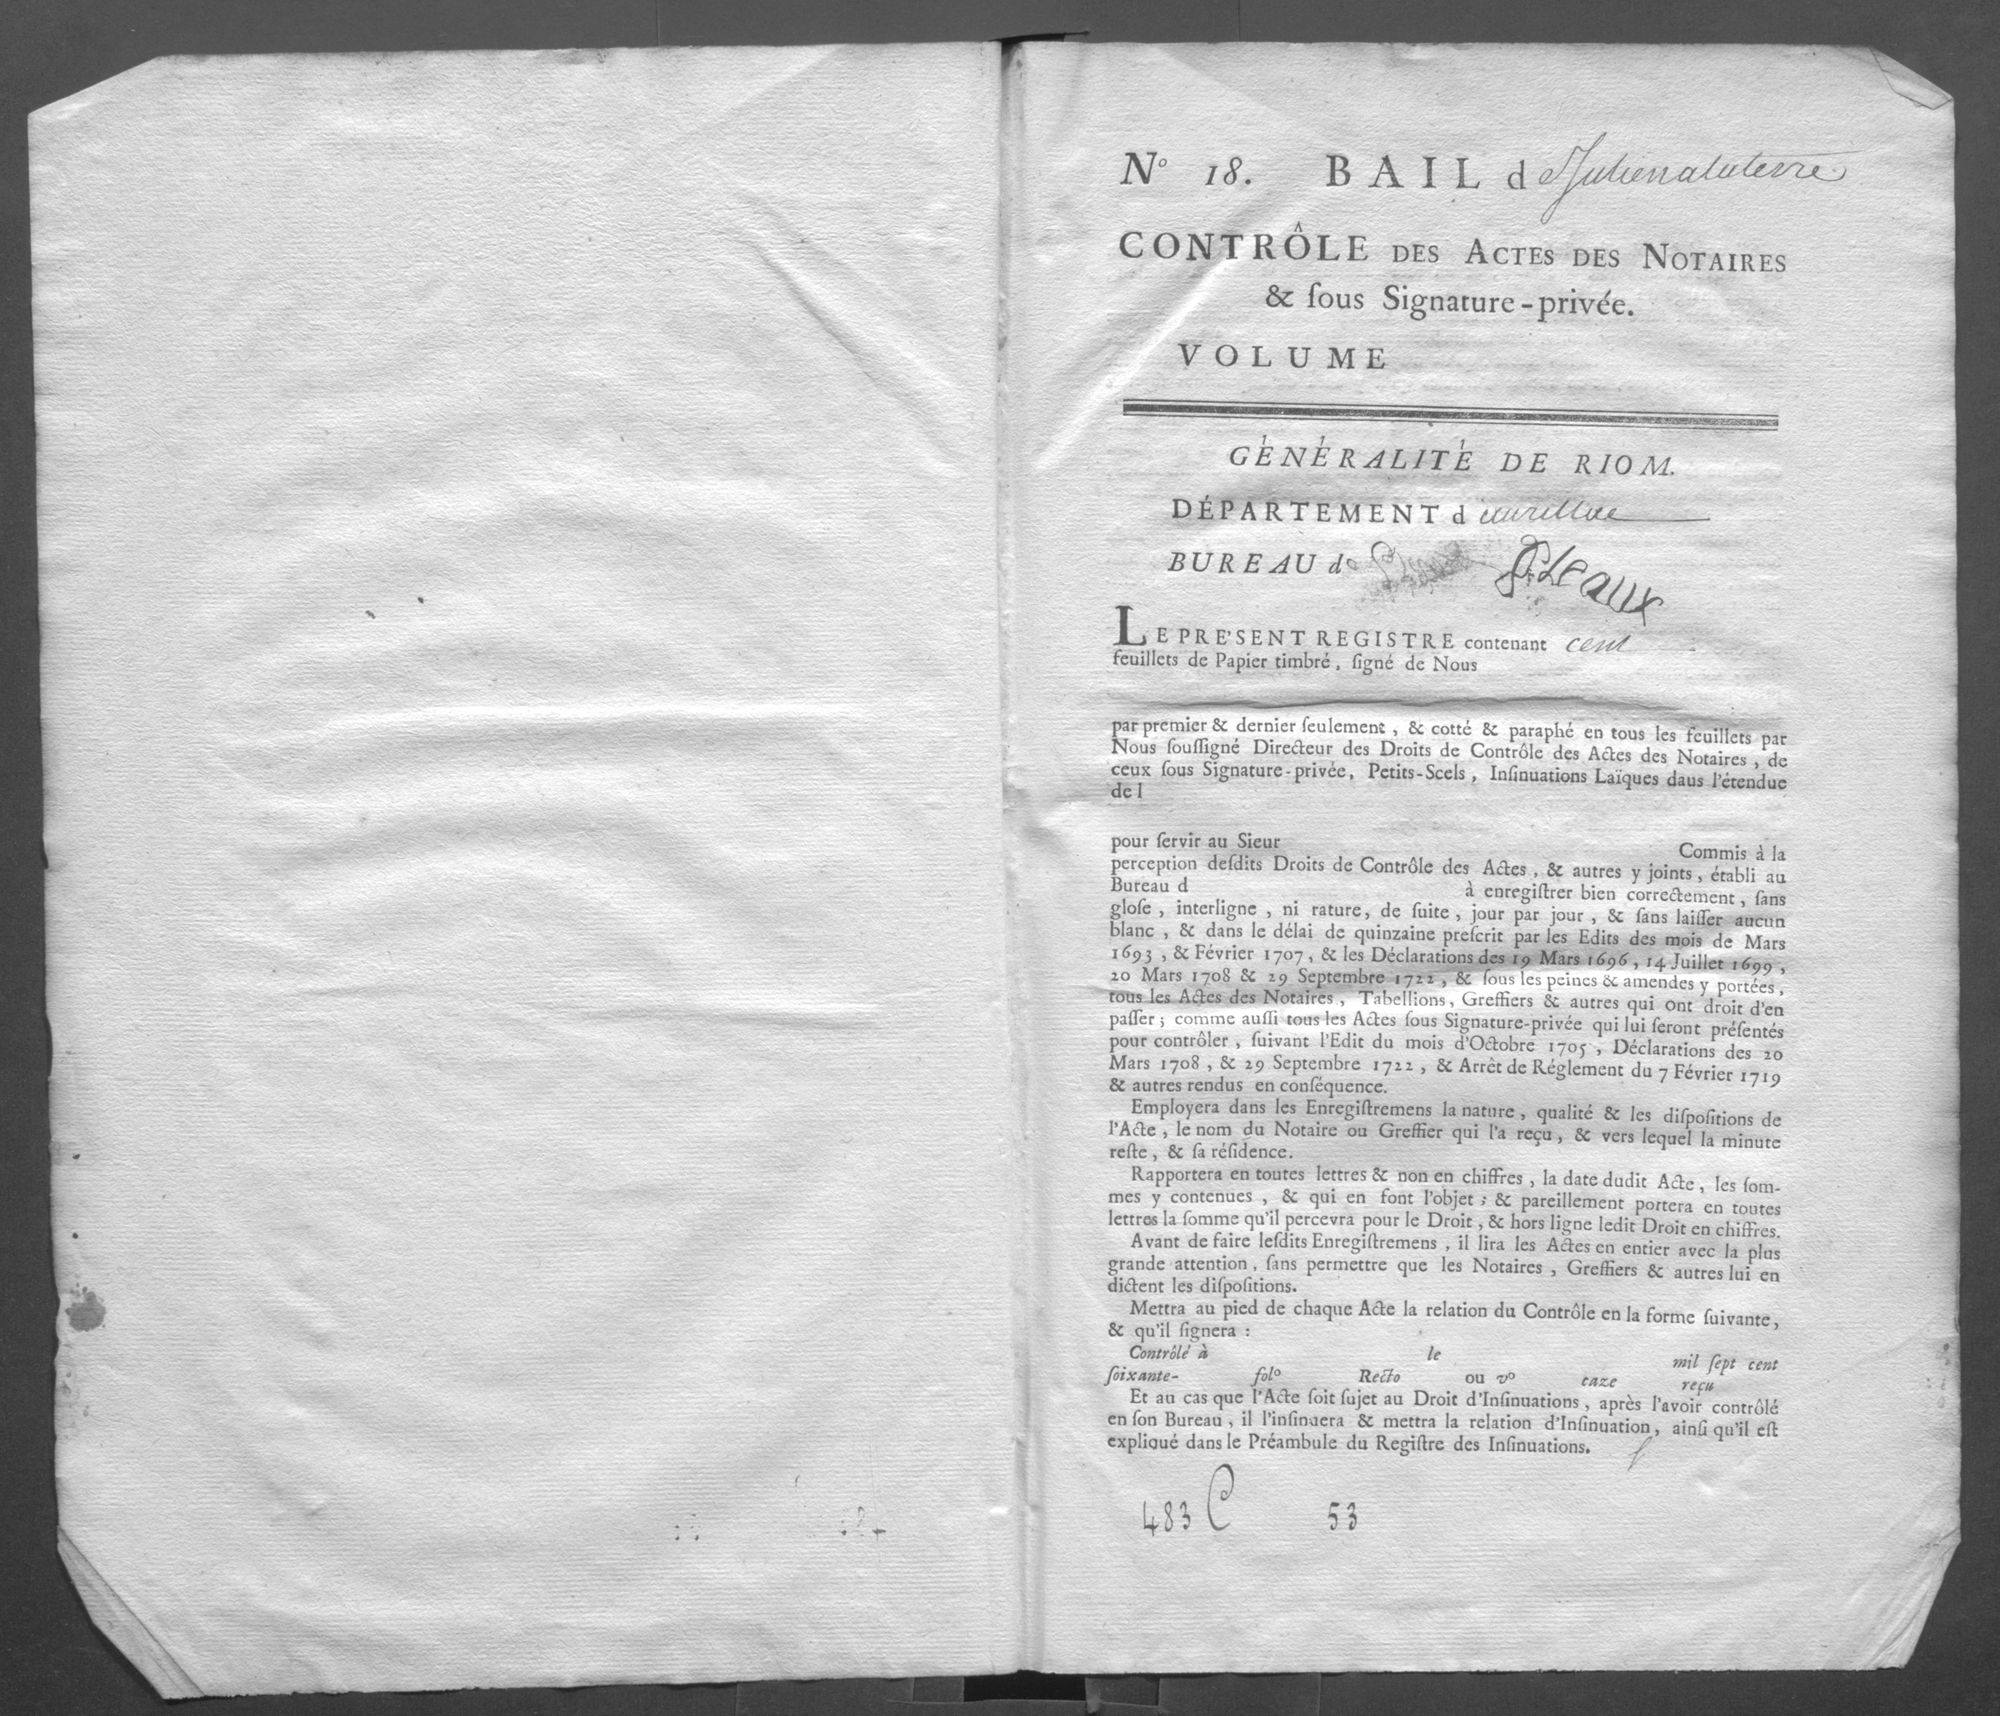 Nº 18. BAIL d Julienalaterre
CONTRÔLE DES ACTES DES NOTAIRES
& ſous Signature-privée.
VOLUME
GÉNÉRALITÉ DE RIOM.
DÉPARTEMENT d aurillac
BUREAU d Pleaux
LE PRE'SENT REGISTRE contenant cent
feuillets de Papier timbré, ſigné de Nous
par premier & dernier ſeulement, & cotté & paraphé en tous les feuillets par
Nous ſouſſigné Directeur des Droits de Contrôle des Actes des Notaires, de
ceux ſous Signature-privée, Petits-Scels, Inſinuations Laïques daus l'étendue
de l
pour ſervir au Sieur Commis à la
perception deſdits Droits de Contrôle des Actes, & autres y joints, établi au
Bureau d à enregiſtrer bien correctement, ſans
gloſe, interligne, ni rature, de ſuite, jour par jour, & ſans laiſſer aucun
blanc, & dans le délai de quinzaine preſcrit par les Edits des mois de Mars
1693, & Février 1707, & les Déclarations des 19 Mars 1696, 14 Juillet 1699,
20 Mars 1708 & 29 Septembre 1722, & ſous les peines & amendes y portées,
tous les Actes des Notaires, Tabellions, Greffiers & autres qui ont droit d'en
paſſer; comme auſſi tous les Actes ſous Signature-privée qui lui ſeront préſentés
pour contrôler, ſuivant l'Edit du mois d'Octobre 1705, Déclarations des 20
Mars 1708, & 29 Septembre 1722, & Arrêt de Réglement du 7 Février 1719
& autres rendus en conſéquence.
Employera dans les Enregiſtremens la nature, qualité & les diſpoſitions de
l'Acte, le nom du Notaire ou Greffier qui l'a reçu, & vers lequel la minute
reſte, & ſa réſidence.
Rapportera en toutes lettres & non en chiffres, la date dudit Acte, les ſom-
mes y contenues, & qui en font l'objet; & pareillement portera en toutes
lettres la ſomme qu'il percevra pour le Droit, & hors ligne ledit Droit en chiffres.
Avant de faire leſdits Enregiſtremens, il lira les Actes en entier avec la plus
grande attention, ſans permettre que les Notaires, Greffiers & autres lui en
dictent les diſpoſitions.
Mettra au pied de chaque Acte la relation du Contrôle en la forme ſuivante,
& qu'il ſignera:
Contrôlé à le mil ſept cent
ſoixante- folº Recto ou vº caze reçu
Et au cas que l'Acte ſoit ſujet au Droit d'Inſinuations, après l'avoir contrôlé
en ſon Bureau, il l'inſinuera & mettra la relation d'Inſinuation, ainſi qu'il eſt
expliqué dans le Préambule du Regiſtre des Inſinuations.
483 C 53